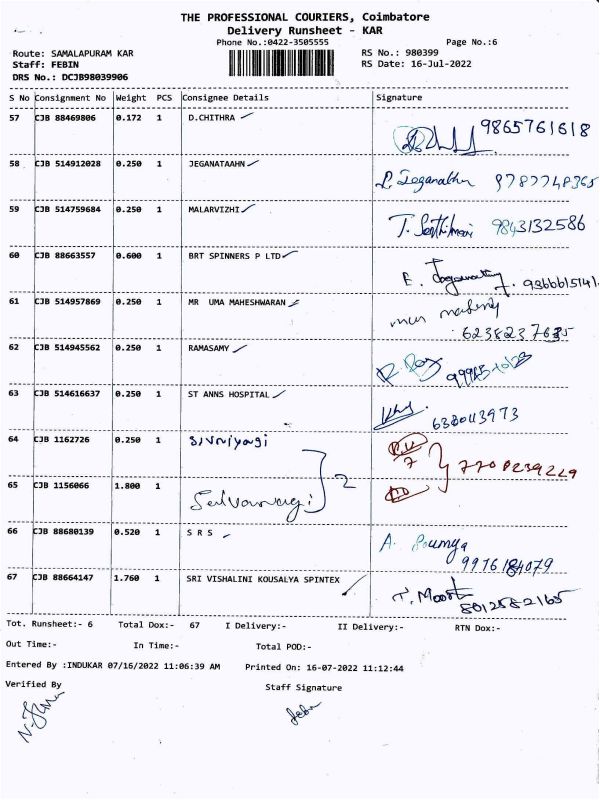 THE PROFESSIONAL COURIERS, Coimbatore
Delivery Runsheet - KAR
Phone No.:0422-3505555 Page No.:6
Route: SAMALAPURAM KAR RS No.: 980399
Staff: FEBIN RS Date: 16-Jul-2022
DRS No.: DCJB98039906
S No Consignment No Weight PCS Consignee Details Signature
57 CJB 88469806 0.172 1 D.CHITHRA
9865761618
58 CJB 514912028 0.250 1 JEGANATAAHN
P. Jeganathan 9787748365
59 CJB 514759684 0.250 1 MALARVIZHI
9843132586
60 CJB 88663557 0.600 1 BRT SPINNERS P LTD
E.
61 CJB 514957869 0.250 1 MR UMA MAHESHWARAN
62 CJB 514945562 0.250 1 RAMASAMY
63 CJB 514616637 0.250 1 ST ANNS HOSPITAL
64 CJB 1162726 0.250 1
7708239229
65 CJB 1156066 1.800 1
2
66 CJB 88680139 0.520 1 S R S
A. Soumya
9976184079
67 CJB 88664147 1.760 1 SRI VISHALINI KOUSALYA SPINTEX
8012582165
Tot. Runsheet:- 6 Total Dox:- 67 I Delivery:- II Delivery:- RTN Dox:-
Out Time:- In Time:- Total POD:-
Entered By :INDUKAR 07/16/2022 11:06:39 AM Printed On: 16-07-2022 11:12:44
Verified By Staff Signature